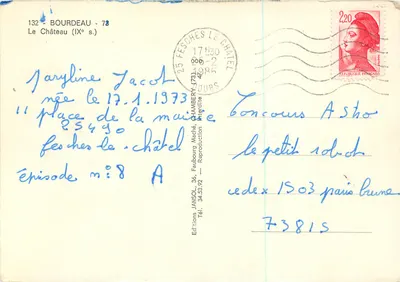 132 - BOURDEAU - 73
Le Château (IXe s.)
25 FESCHES LE CHATEL
17H30
2,20
Maryline Jacot
née le 17.1.1973
11 place de la mairie
25490
fesches-le-châtel
épisode n:8 A
Editions JANSOL, 36, Faubourg Maché, CHAMBERY (73)
Tél. 34.53.92 - Reproduction interdite
Concours Astro
le petit robot
cedex 1503 paris brune
73815